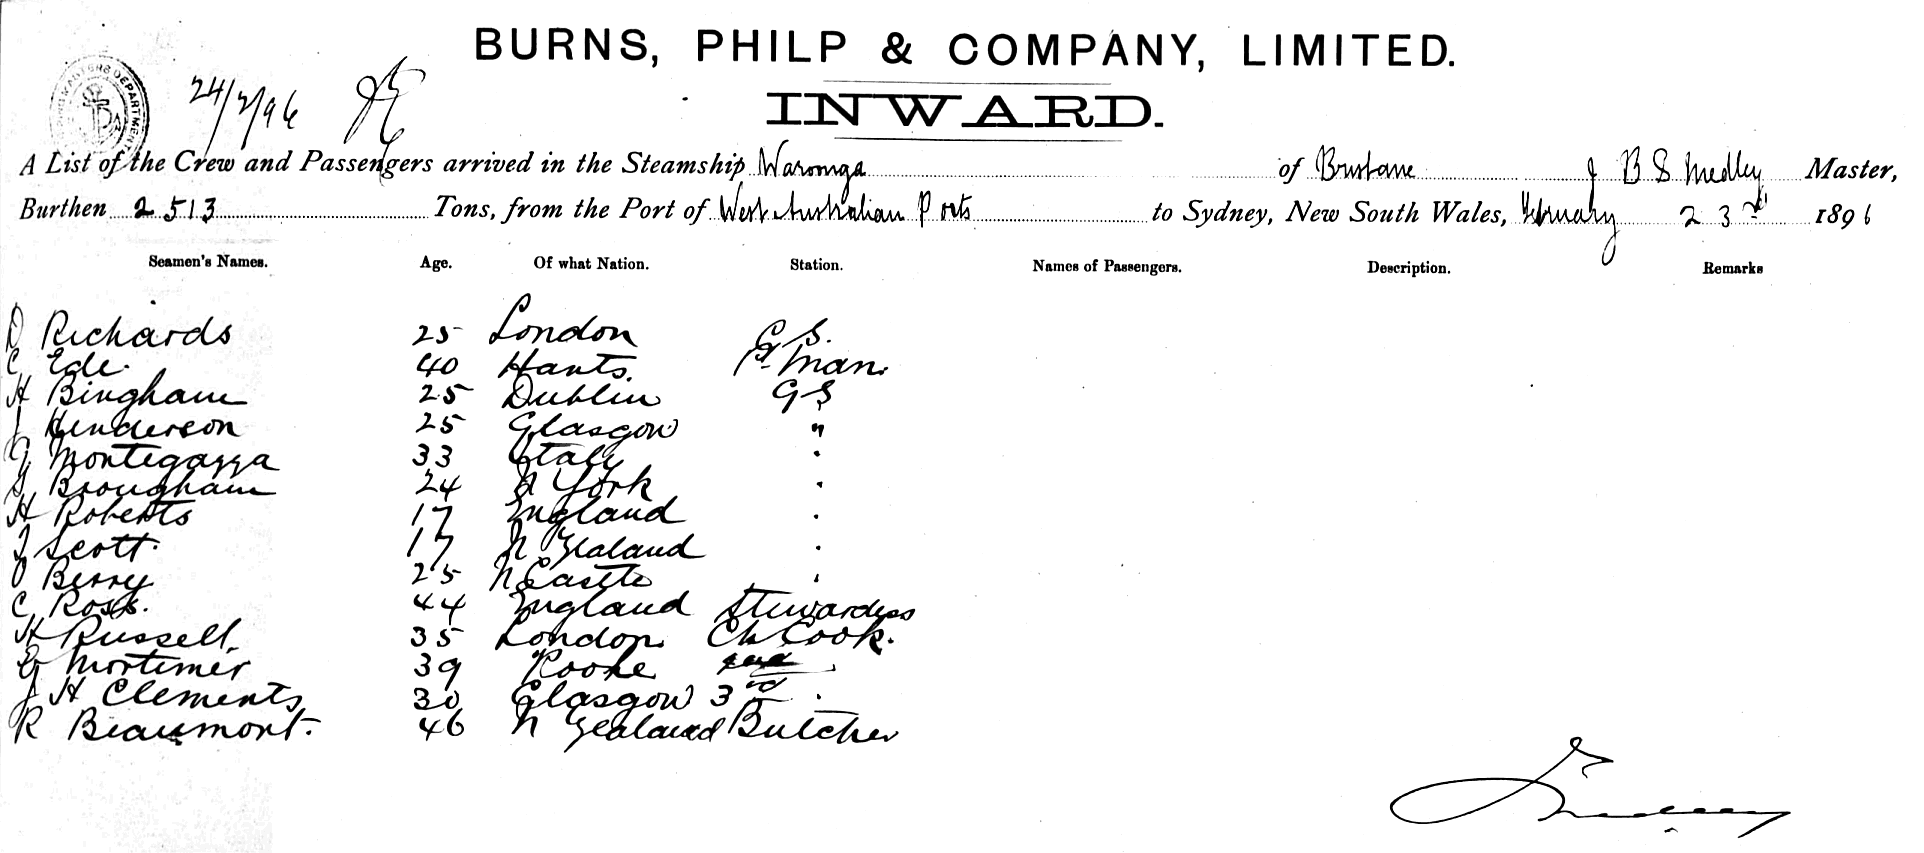 BURNS, PHILP & COMPANY, LIMITED.
24/2/96
INWARD.
A List of the Crew and Passengers arrived in the Steamship Waroonga of Brisbane J B S Medley Master,
Burthen 2513 Tons, from the Port of West Australian Ports to Sydney, New South Wales, February 23rd 1896
Seamen's Names. Age. Of what Nation. Station. Names of Passengers. Description. Remarks
D Richards 25 London G S.
C Ede. 40 Hants. Man.
H Bingham 25 Dublin G S
J Henderson 25 Glasgow "
G Montegazza 33 Italy "
G Brougham 24 N York "
H Roberts 17 England "
J Scott. 17 N Zealand "
O Berry 25 N Castle "
C Ross. 44 England Stewardess
H Russell. 35 London Ch Cook.
G Mortimer 39 2nd
J H Clements 30 Glasgow 3rd "
R Beaumont. 46 N Zealand Butcher